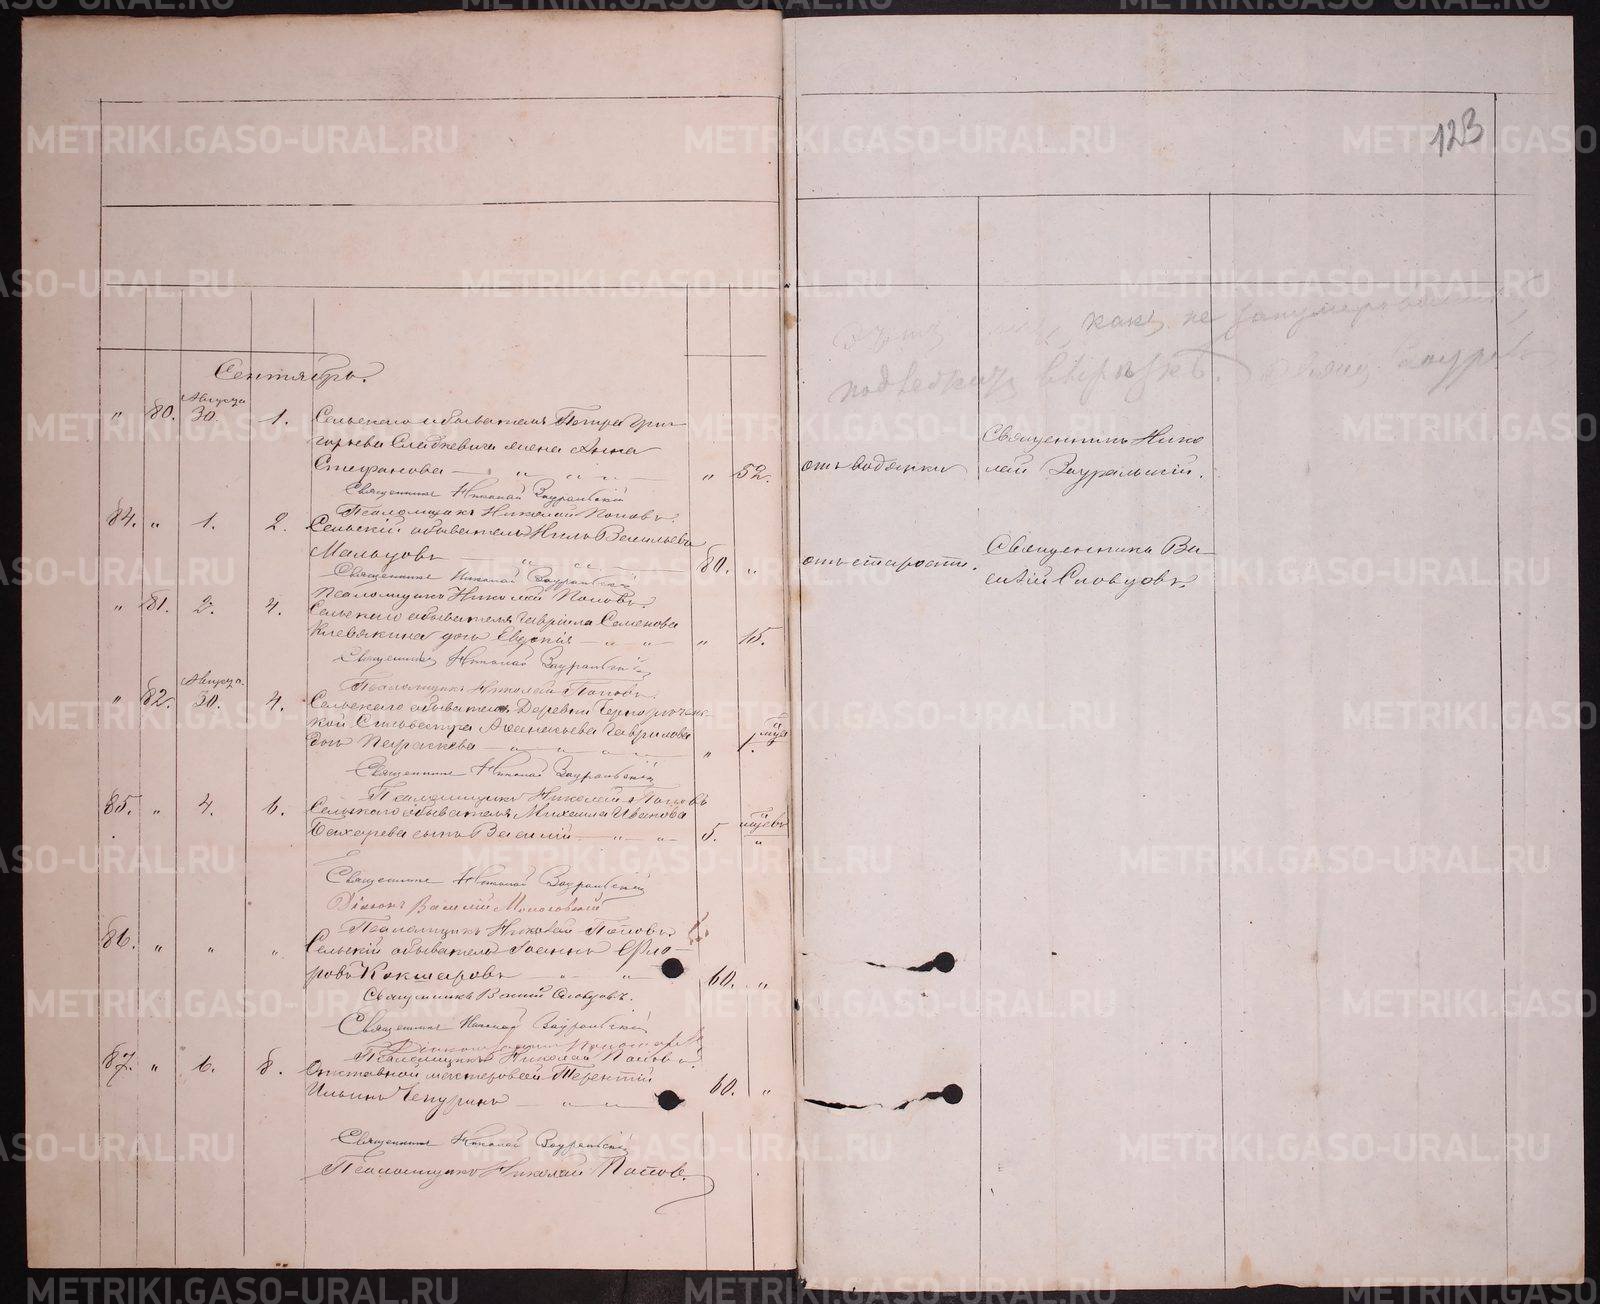 123
какъ не занумерованный,
подлежитъ вырѣзкѣ.
Сентябрь.
" 80. Августа 30. 1. Сельскаго обывателя Петра Гри-
горьева Сладкевича жена Анна
Стефанова " 52. отъ водянки Священникъ Нико
лай Зауральскій.
Священникъ Николай Зауральскій
Псаломщикъ Николай Поповъ.
84. " 1. 2. Сельскій обыватель Нилъ Васильевъ
Мальцовъ 80. " отъ старости. Священникъ Ва-
силій Словцовъ.
Священникъ Николай Зауральскій
Псаломщикъ Николай Поповъ.
" 81. 2. 4. Сельскаго обывателя Гавріила Семенова
Клевакина дочь Евдокія " 15.
Священникъ Николай Зауральскій
Псаломщикъ Николай Поповъ.
" 82. Августа 30. 4. Сельскаго обывателя Деревни
Сильвестра Аѳанасьева Гаврилова
дочь Параскева " 1. мца
Священникъ Николай Зауральскій
Псаломщикъ Николай Поповъ
85. " 4. 6. Сельскаго обывателя Михаила Иванова
Бахарева сынъ Василій 5. мцевъ
Священникъ Николай Зауральскій
Діаконъ Василій
Псаломщикъ Николай Поповъ.
86. " " " Сельскій обыватель Іоаннъ Фло-
ровъ Кокшаровъ 60. "
Священникъ Василій Словцовъ.
Священникъ Николай Зауральскій
Псаломщикъ Николай Поповъ
87. " 6. 8. Отставной мастеровой Терентій
Ильинъ Чепуринъ 60. "
Священникъ Николай Зауральскій
Псаломщикъ Николай Поповъ.
METRIKI.GASO-URAL.RU